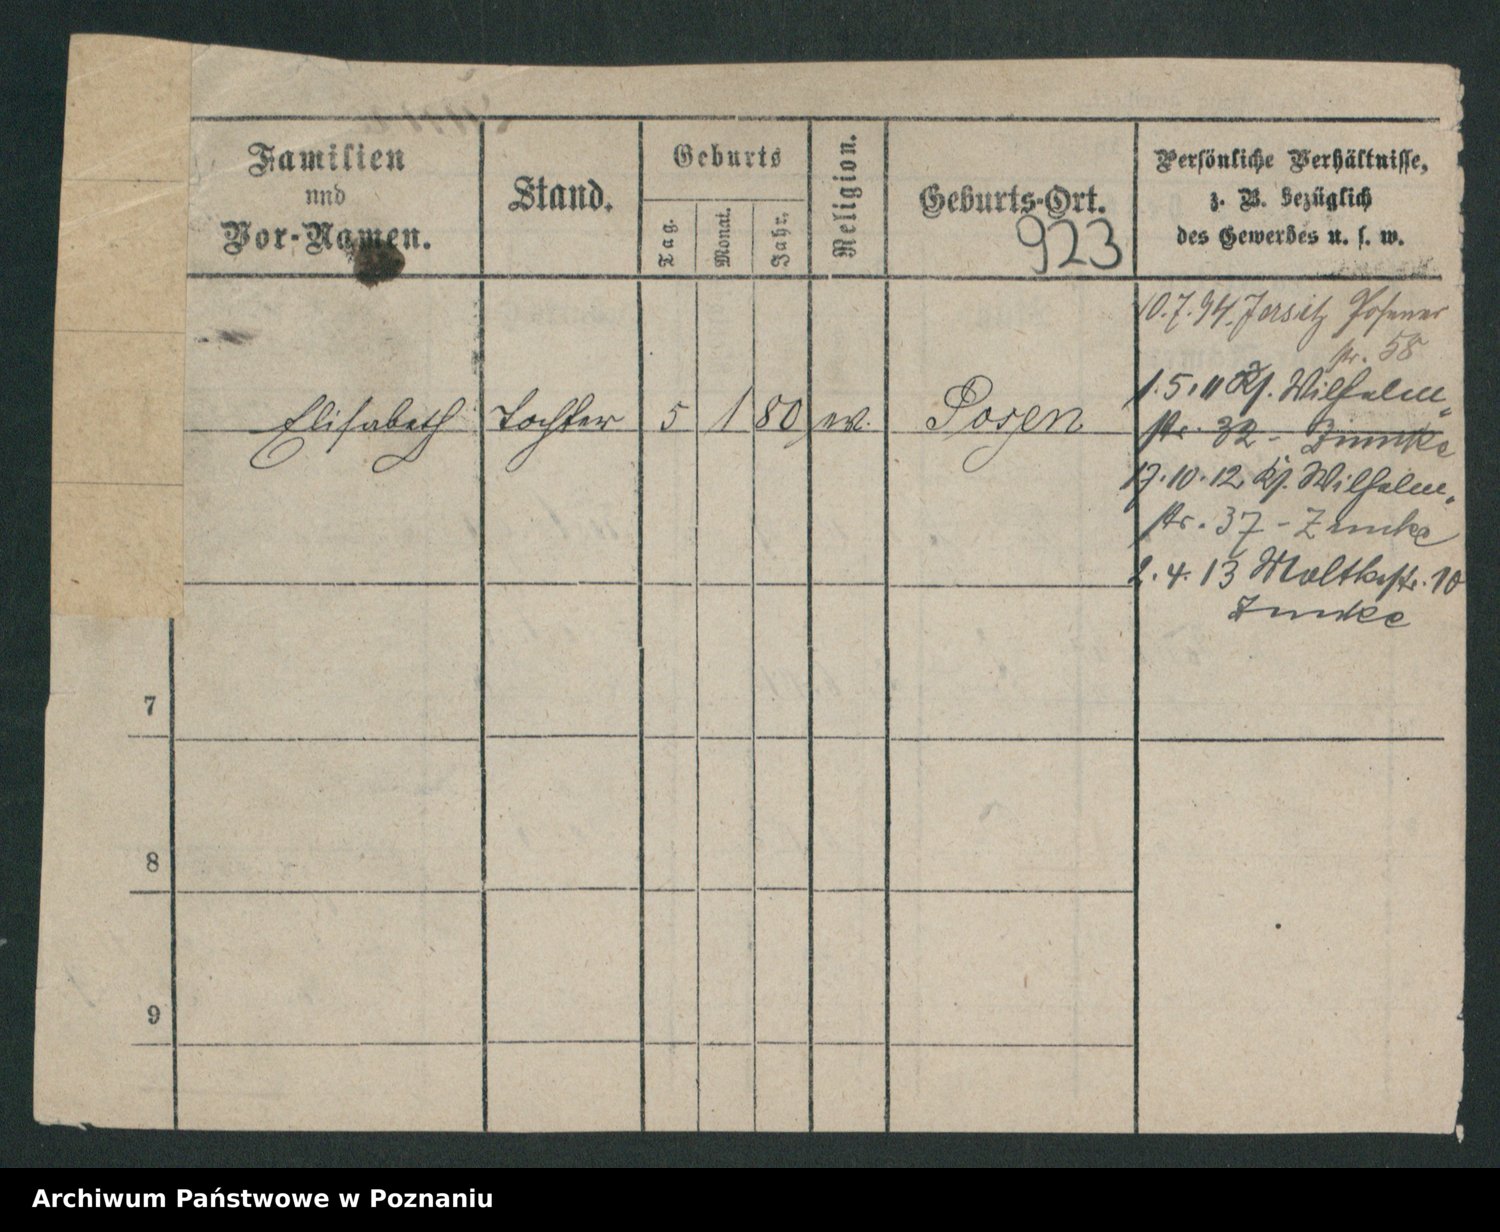 Familien
und
Vor-Namen.
Stand.
Geburts
Tag.
Monat.
Jahr.
Religion.
Geburts-Ort.
923
Persönliche Verhältnisse,
z. B. bezüglich
des Gewerbes u. s. w.
10.7.94. Jersitz Posener
str. 58
Elisabeth Tochter 5 1 80 ev. Posen
1.5.11 Wilhelm
str. 32 -
17.10.12 Wilhelm
str. 37 - Zimke
2.4.13 Moltkestr. 10
Zimke
7
8
9
Archiwum Państwowe w Poznaniu